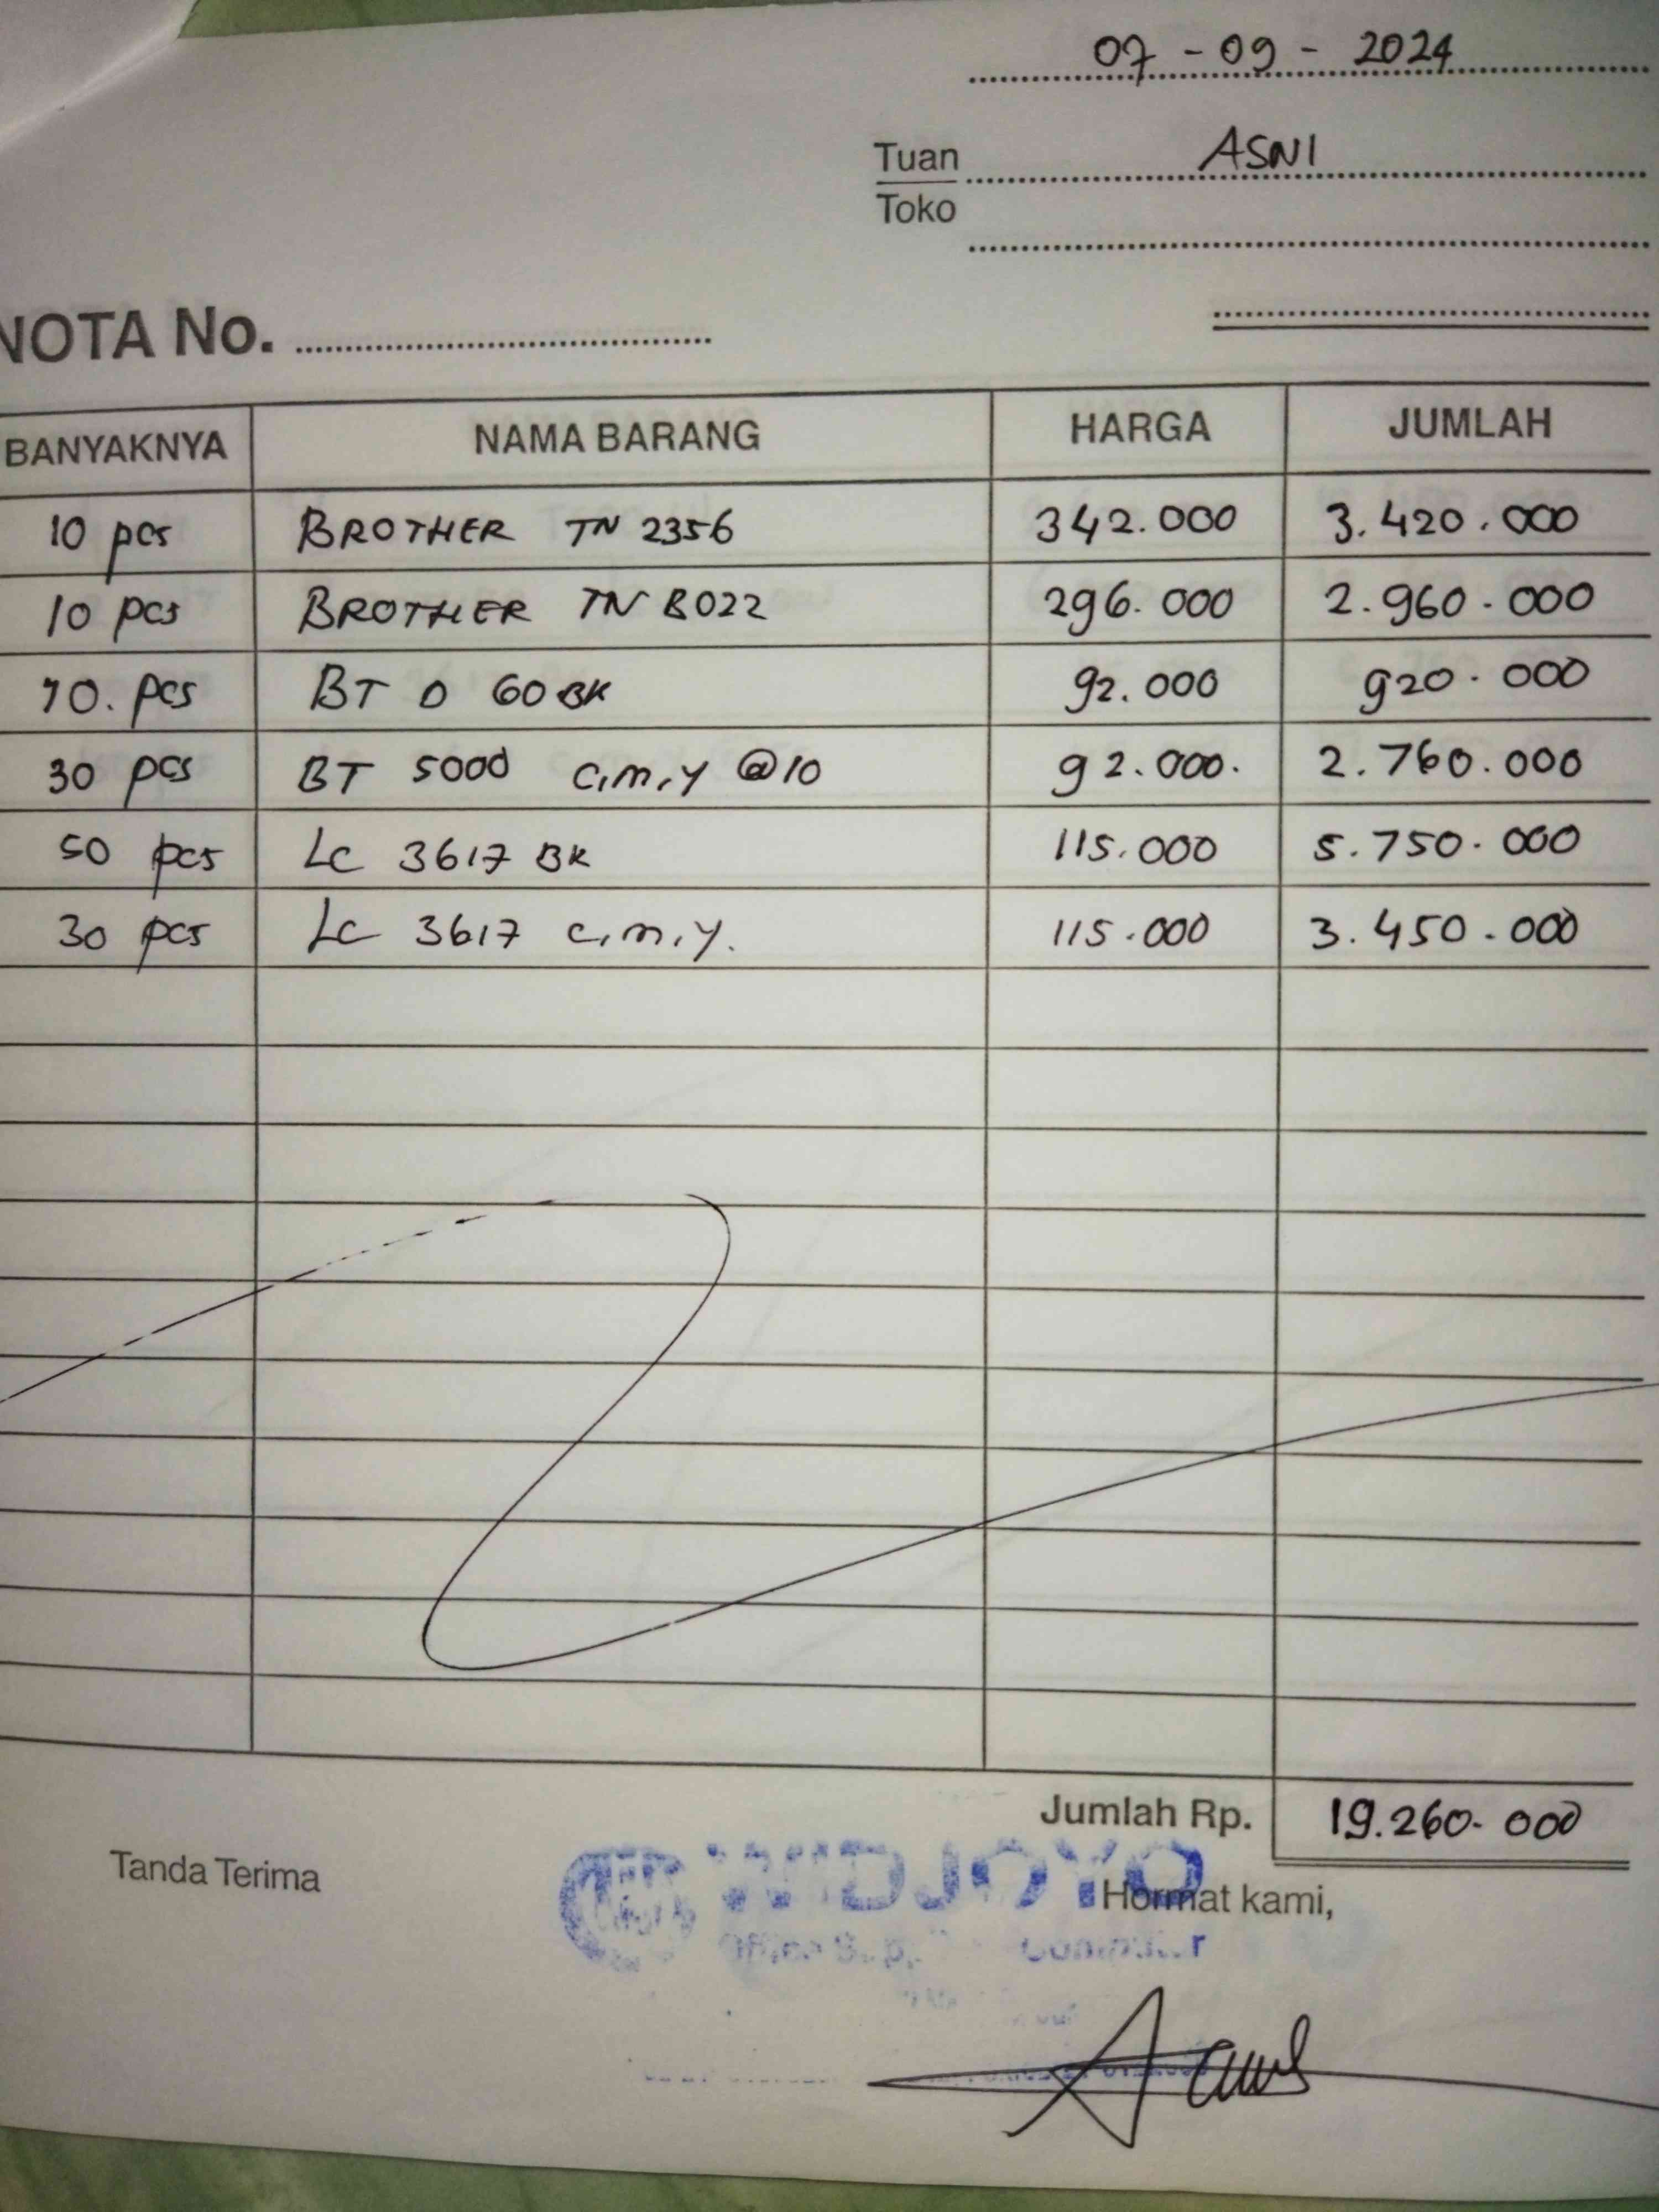 07 - 09 - 2024
Tuan ASNI
Toko
NOTA No.
BANYAKNYA NAMA BARANG HARGA JUMLAH
10 pcs BROTHER TN 2356 342.000 3.420.000
10 pcs BROTHER TN B022 296.000 2.960.000
10. pcs BT D 60 BK 92.000 920.000
30 pcs BT 5000 c,m,y @10 92.000. 2.760.000
50 pcs LC 3617 BK 115.000 5.750.000
30 pcs LC 3617 c,m,y. 115.000 3.450.000
Jumlah Rp. 19.260.000
Tanda Terima
Hormat kami,